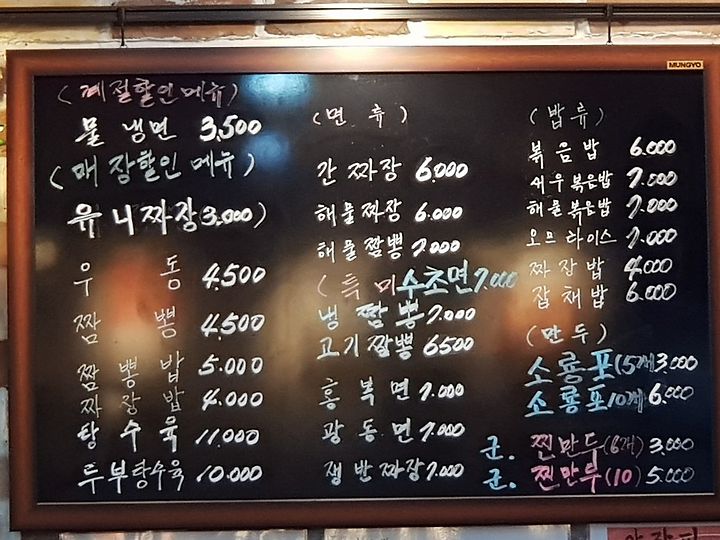 MUNGYO
(계절할인메뉴)
물 냉면 3,500
(매장할인 메뉴)
유니짜장(3,000)
우 동 4,500
짬 뽕 4,500
짬 뽕 밥 5.000
짜 장 밥 4.000
탕 수 육 11.000
두부탕수육 10.000
(면 류)
간 짜장 6.000
해물짜장 6.000
해물짬뽕 7.000
(특 미 수초면 7.000
냉 짬 뽕 7.000
고기짬뽕 6500
홍 복 면 7.000
광 동 면 7.000
쟁반짜장 7.000
(밥 류)
볶음밥 6.000
새우볶음밥 7.000
해물볶음밥 7.000
오므라이스 7.000
짜장밥 4.000
잡채밥 6.000
(만 두)
소룡포(5개 3.000
소룡포 10개 6.000
군. 찐만두(6개) 3.000
군. 찐만두(10) 5.000